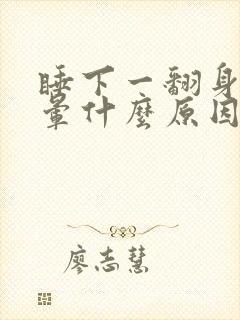 睡下一翻身
暈什麼原因
廖志慧